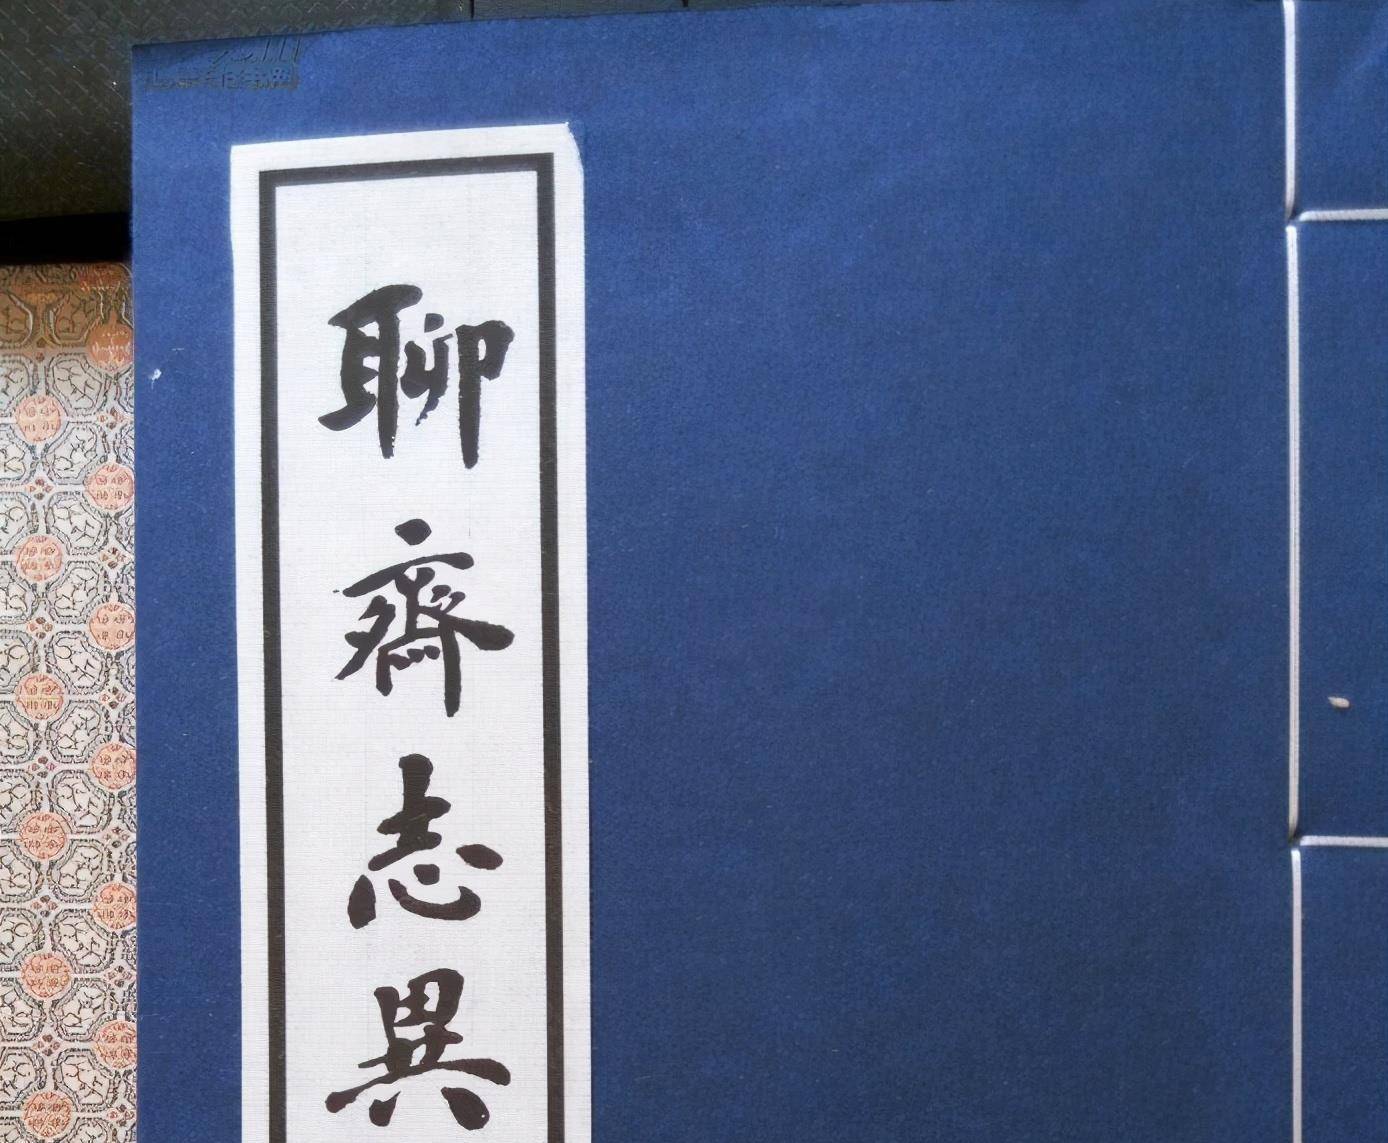 聊齋志異